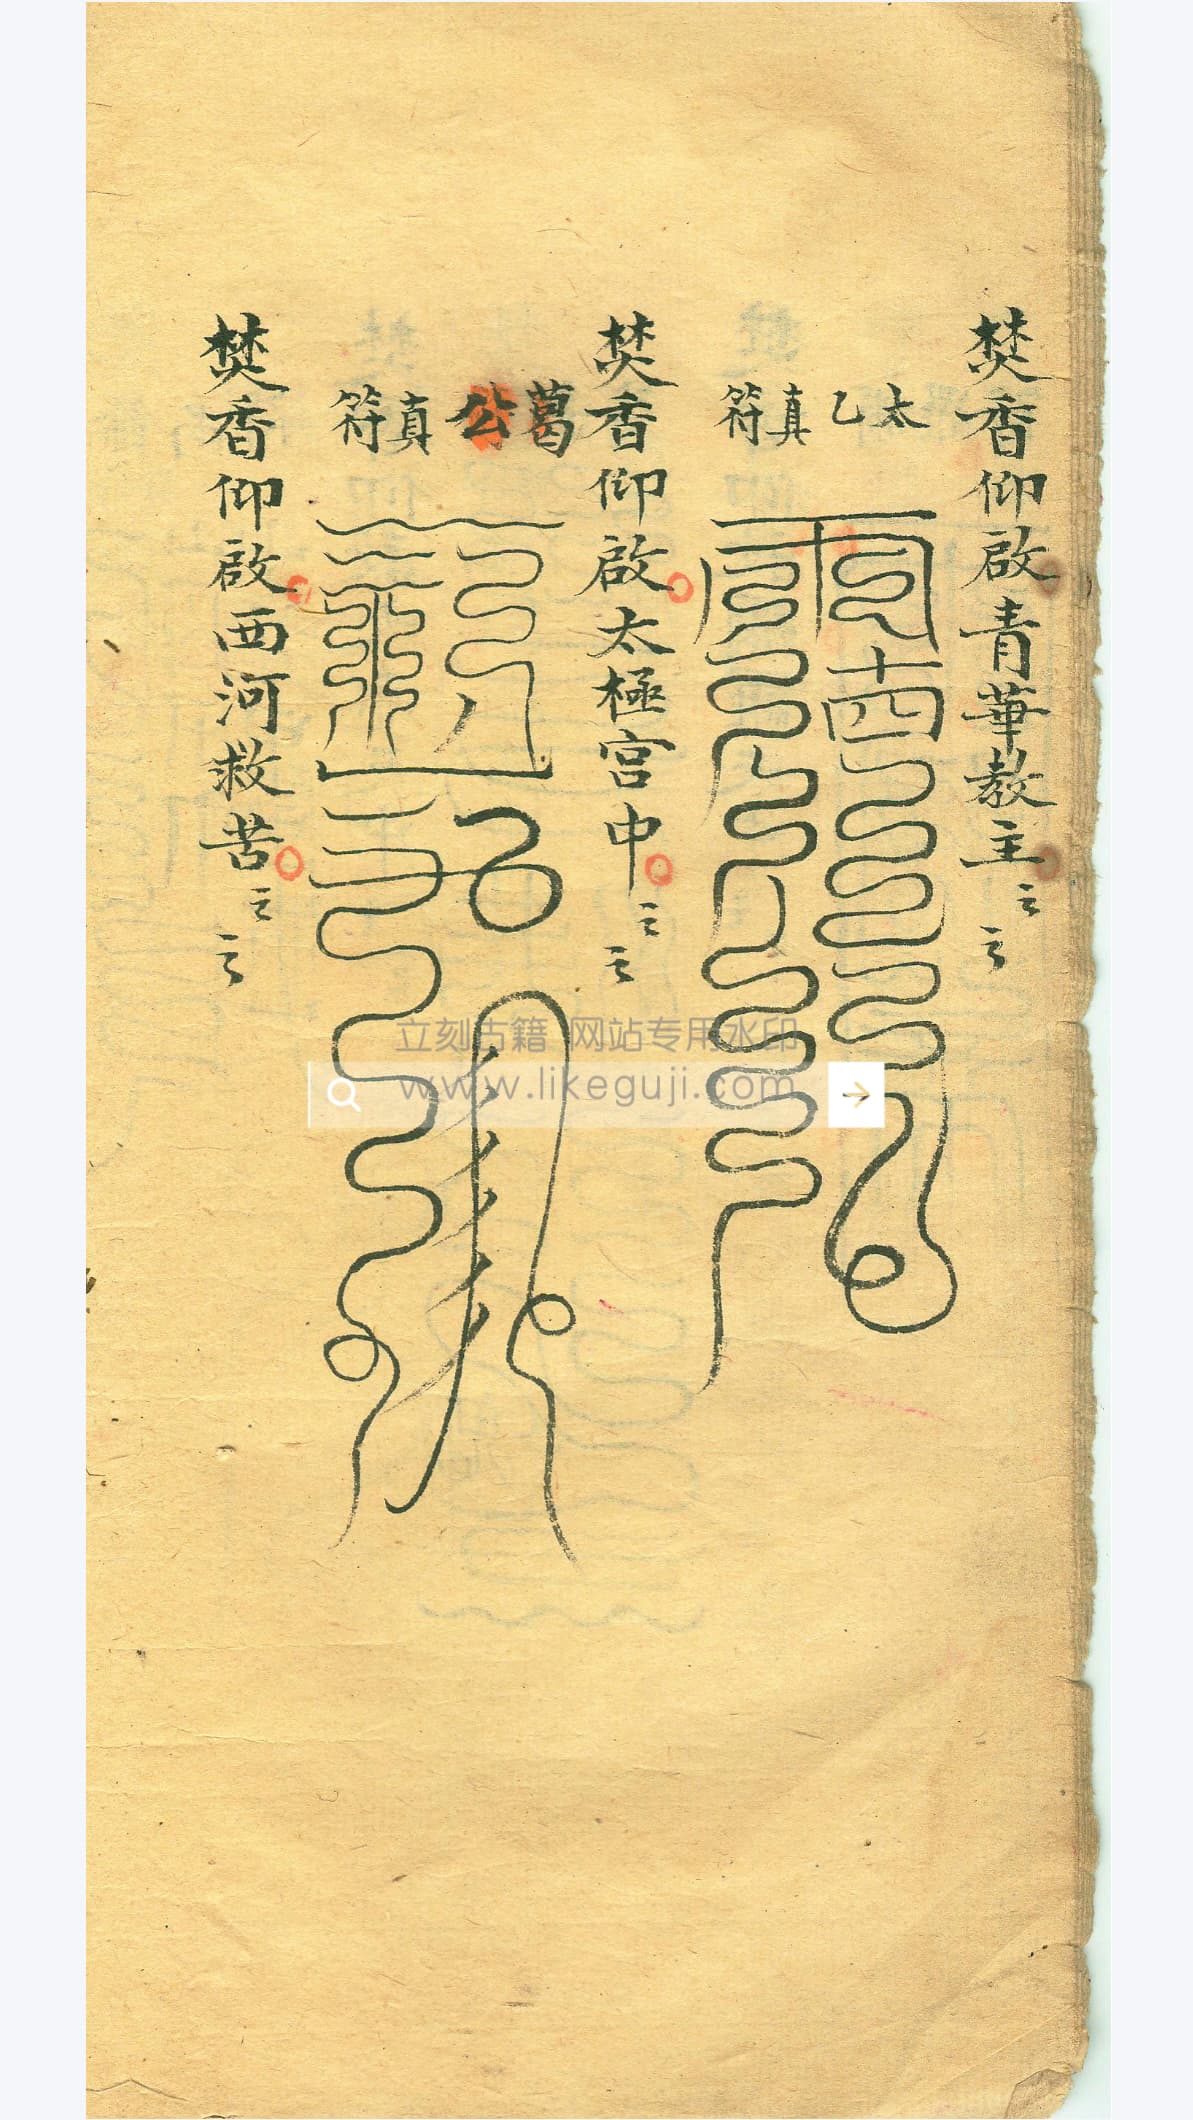 焚香仰啟青華教主云云
太乙真符
焚香仰啟太極宮中云云
葛公真符
焚香仰啟西河救苦云云
立刻古籍 网站专用水印
www.likeguji.com